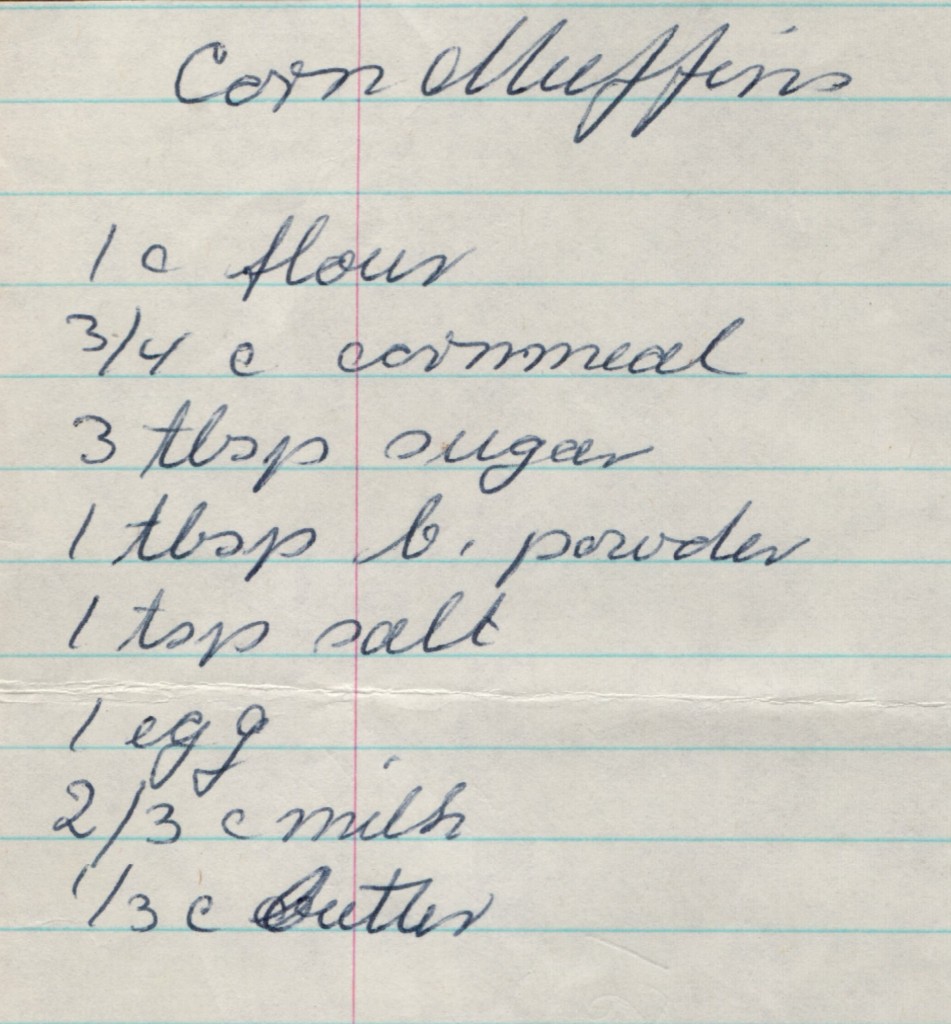 Corn Muffins
1 c flour
3/4 c cornmeal
3 tbsp sugar
1 tbsp b. powder
1 tsp salt
1 egg
2/3 c milk
1/3 c butter